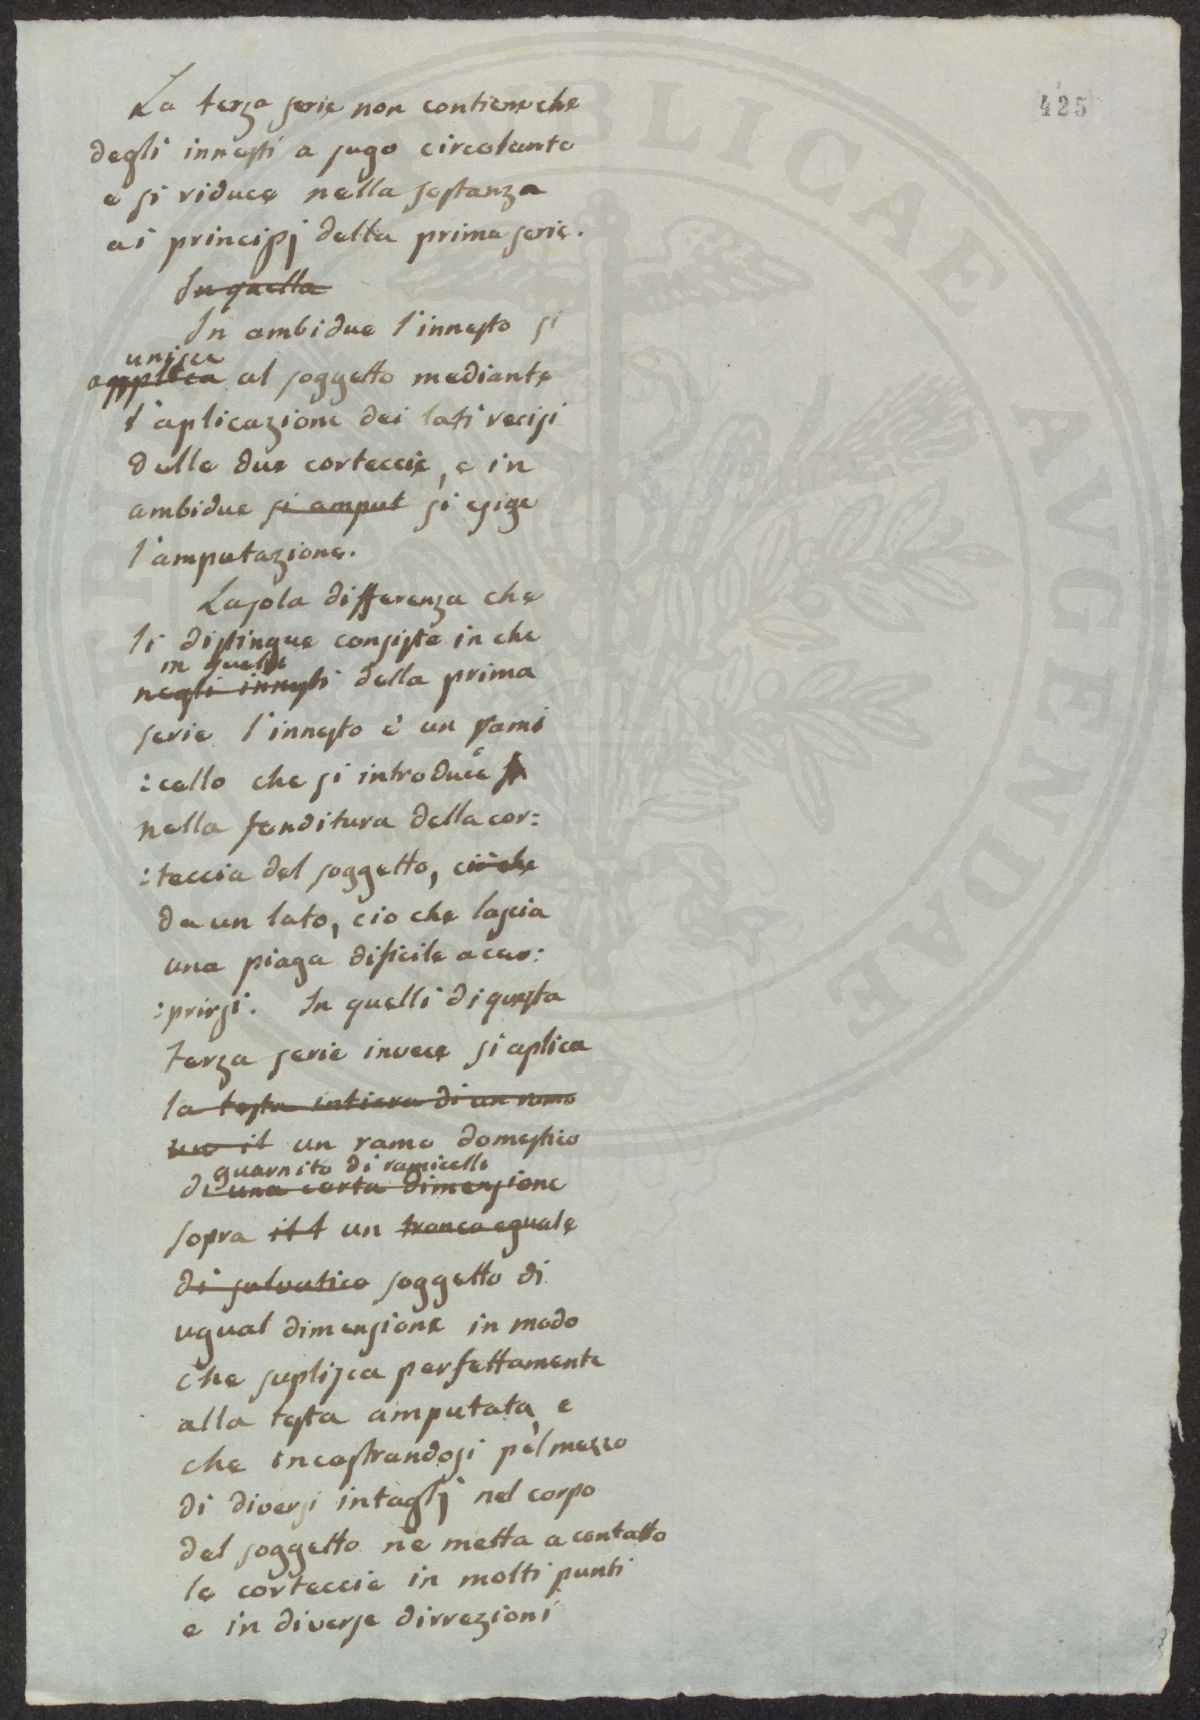 425
La terza serie non contiene che
degli innesti a sugo circolante
e si riduce nella sostanza
ai principj della prima serie.
In quella
In ambidue l'innesto si
unisce
applica al soggetto mediante
l'aplicazione dei lati recisi
delle due corteccie, e in
ambidue si amput si esige
l'amputazione.
La sola differenza che
li distingue consiste in che
in quelli
negli innesti della prima
serie l'innesto è un rami
:cello che si introduce
nella fenditura della cor:
:teccia del soggetto, ciò che
da un lato, cio che lascia
una piaga dificile a cuo:
:prirsi. In quelli di questa
terza serie invece si aplica
la testa intiera di un ramo
il un ramo domestico
guarnito di ramicelli
di una certa dimensione
sopra il t un tronco eguale
di salvatico soggetto di
ugual dimensione in modo
che suplisca perfettamente
alla testa amputata, e
che incastrandosi pel mezzo
di diversi intaglj nel corpo
del soggetto ne metta a contatto
le corteccie in molti punti
e in diverse dirrezioni
PUBLICAE AVGENDAE